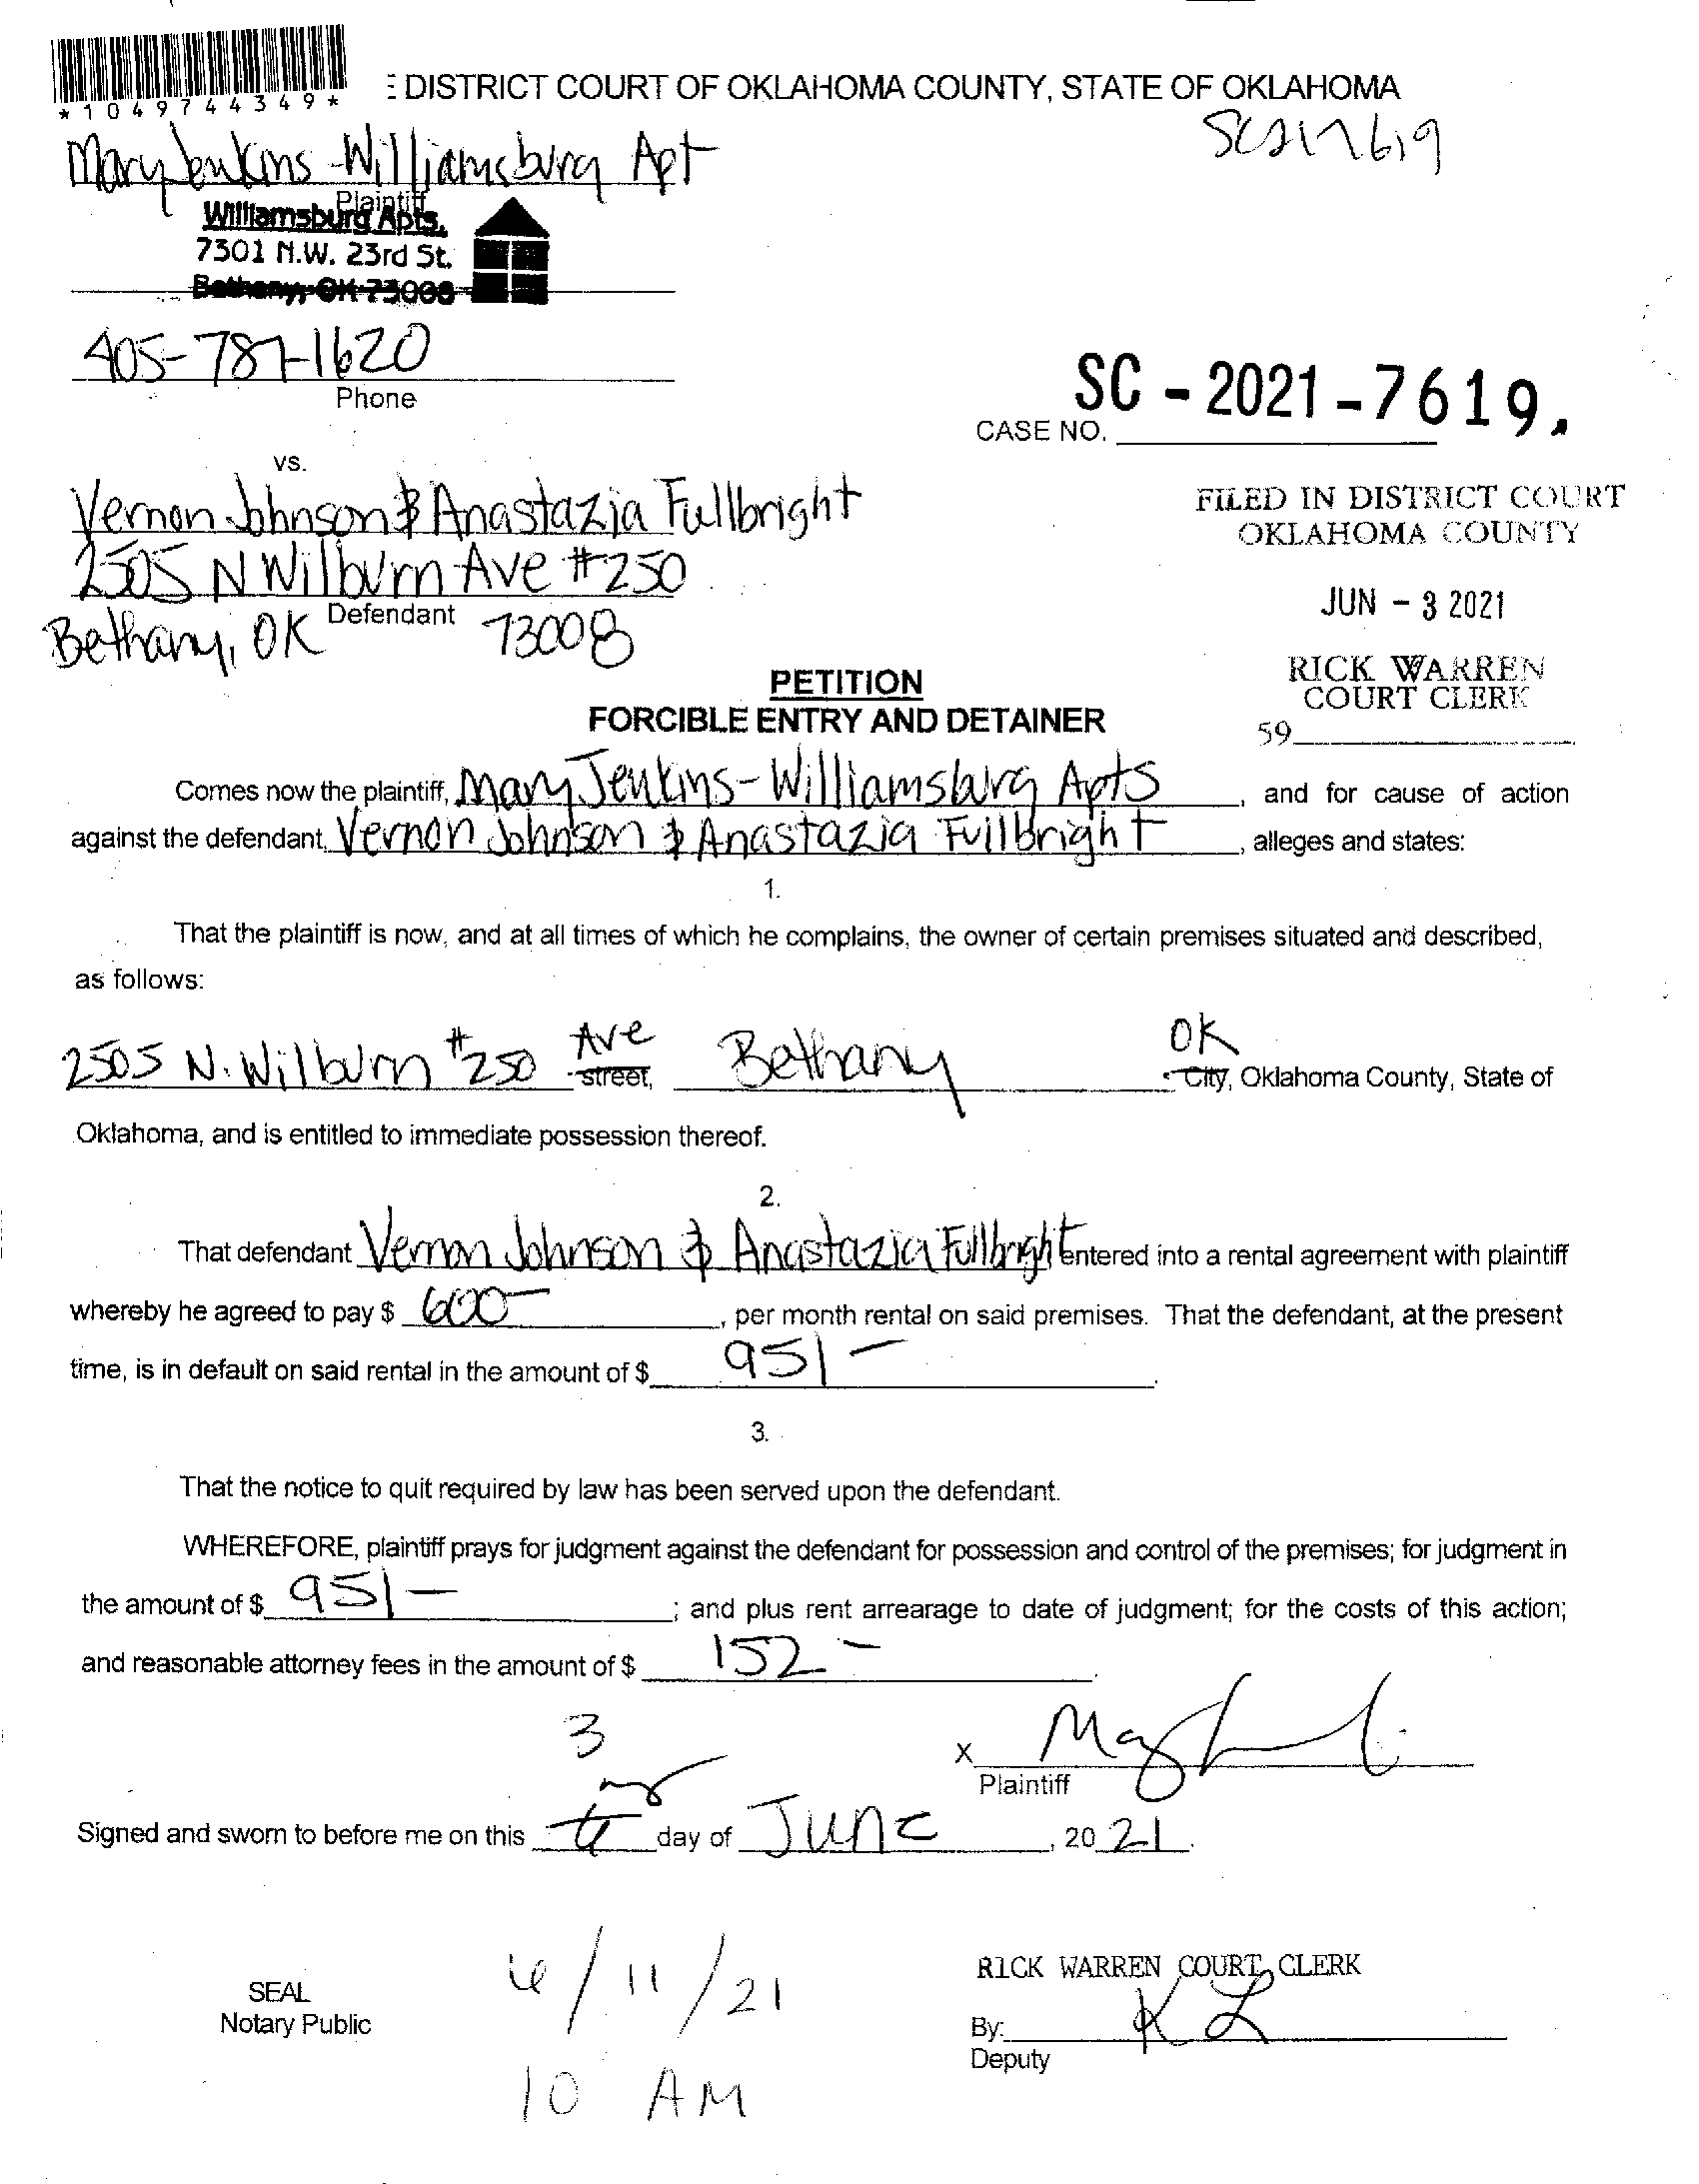 *1049744349*
E DISTRICT COURT OF OKLAHOMA COUNTY, STATE OF OKLAHOMA
SC217619
Mary Jenkins-Williamsburg Apt
Plaintiff
Williamsburg Apts.
7301 N.W. 23rd St.
Bethany, OK 73008
405-787-1620
Phone
SC - 2021-7619.
CASE NO.
vs.
Vernon Johnson & Anastazia Fullbright
2505 N Wilburn Ave #250
Defendant
Bethany, OK 73008
FILED IN DISTRICT COURT
OKLAHOMA COUNTY
JUN - 3 2021
RICK WARREN
COURT CLERK
59
PETITION
FORCIBLE ENTRY AND DETAINER
Comes now the plaintiff, Mary Jenkins-Williamsburg Apts, and for cause of action
against the defendant, Vernon Johnson & Anastazia Fullbright, alleges and states:
1.
That the plaintiff is now, and at all times of which he complains, the owner of certain premises situated and described,
as follows:
2505 N. Wilburn #250 Ave street, Bethany OK City, Oklahoma County, State of
Oklahoma, and is entitled to immediate possession thereof.
2.
That defendant Vernon Johnson & Anastazia Fullbright entered into a rental agreement with plaintiff
whereby he agreed to pay $ 600-, per month rental on said premises. That the defendant, at the present
time, is in default on said rental in the amount of $ 951-.
3.
That the notice to quit required by law has been served upon the defendant.
WHEREFORE, plaintiff prays for judgment against the defendant for possession and control of the premises; for judgment in
the amount of $ 951-; and plus rent arrearage to date of judgment; for the costs of this action;
and reasonable attorney fees in the amount of $ 152-.
X
Plaintiff
3
Signed and sworn to before me on this day of June, 2021.
SEAL
Notary Public
6/11/21
10 AM
RICK WARREN COURT CLERK
By: K L
Deputy